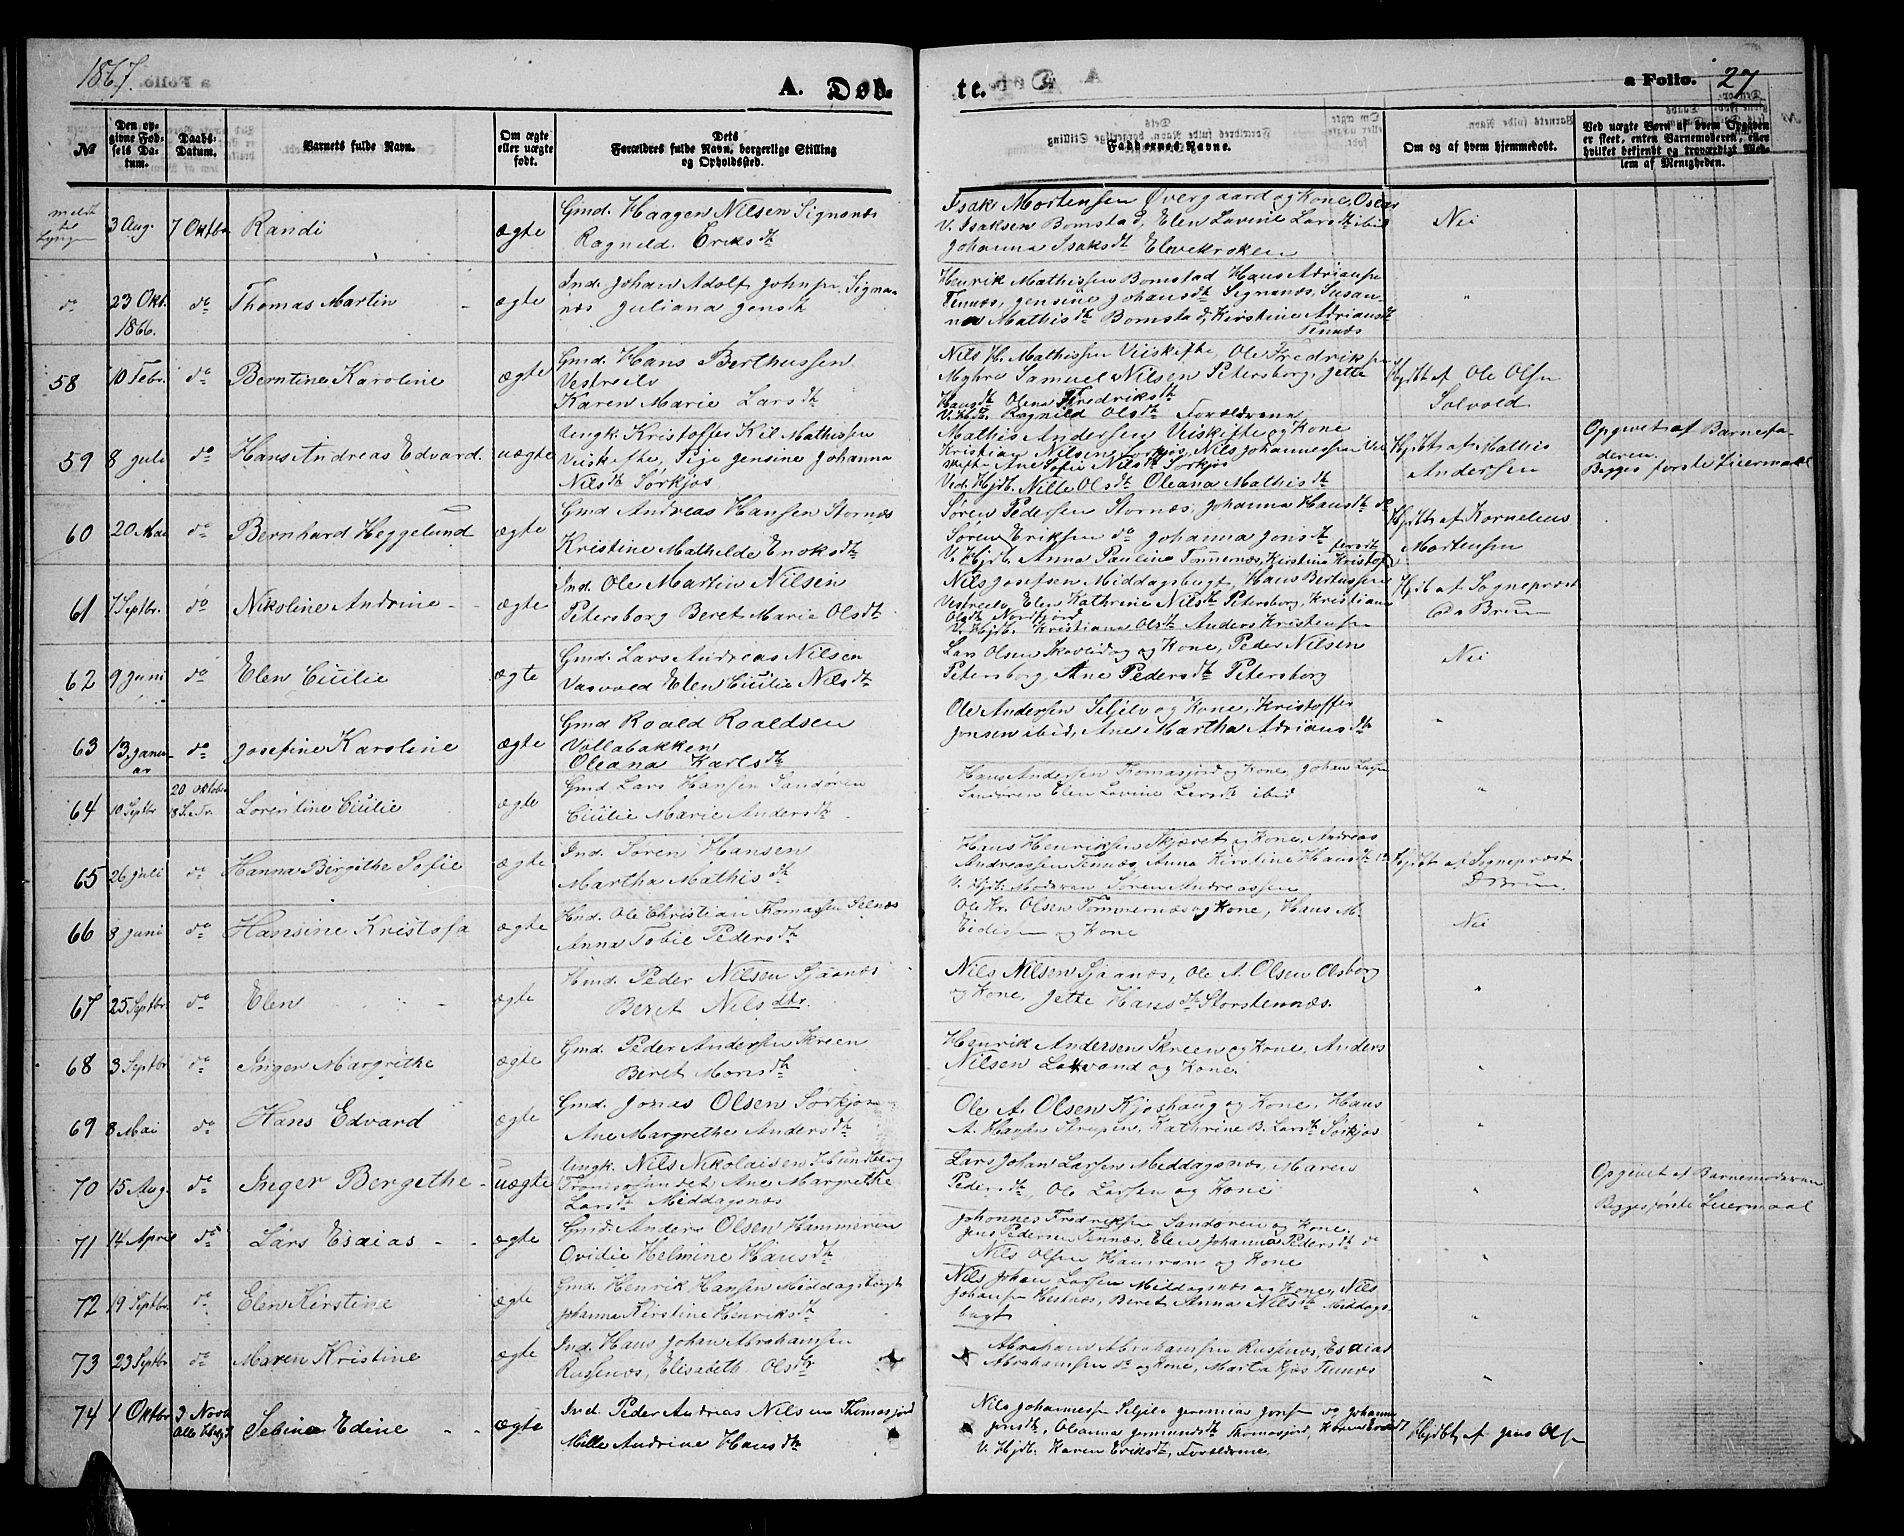 1867.
A. Døb
te.
a Folio. 27
№
Den opgivne Fødsels Datum.
Daabs-Datum.
Barnets fulde Navn.
Om ægte eller uægte født.
Dets Forældres fulde Navn, borgerlige Stilling og Opholdssted.
Faddernes Navne.
Om og af hvem hjemmedøbt.
Ved uægte Børn af hvem Opgiven er skeet, enten Barnemoderen, eller hvilket bekjendt og troværdigt Medlem af Menigheden.
3 Aug. 7 Oktbr Randi ægte
Gmd. Haagen Nilsen Signanæs
Ragnild Eriksdt
Isak Mortensen Øvergaard og Kone, Oscar
V. Isaksen Bomstad, Elen Lavine Larsdt ibid
Johanna Isaksdt Elvekroken
Nei
do 23 Okt. 1866. do Thomas Martin ægte
Ind. Johan Adolf Johnsen, Signa-
næs Juliana Jensdt
Henrik Mathissen Bomstad Hans Adriansen
Tennæs, Jensine Johansdt Signanæs, Susan-
na Mathisdt Bomstad, Kirstine Adriansdt
Tennæs
"
58 10 Febr. do Berntine Karoline ægte
Gmd. Hans Berthussen
Vestreelv
Karen Marie Larsdt
Nils H. Mathissen Veiskifte, Ole Fredriksen
Myhre Samuel Nilsen Petersborg, Jette
Hansdt Olena Fredriksdt
V. Hdb. Ragnild Olsdt Forældrene
Hjdbt af Ole Olsen
Solvold
59 8 Juli do Hans Andreas Edvard. uægte
Ungk. Kristoffer Kil Mathissen
Veiskifte, Pige Jensine Johanna
Nilsdt Sørkjos
Mathis Andersen Veiskifte og Kone
Kristian Nilsen Sørkjos, Nils Johannessen Vei
skifte Ane Sofie Nilsdt Sørkjos
Ved. Hjdb. Nille Olsdt Oleana Mathisdt
Hjdbt af Mathis
Andersen
Opgivet af Barnefa-
deren.
Begges første Leiermaal
60 20 Mai do Bernhard Heggelund ægte
Gmd Andreas Hansen Stornæs
Kristine Mathilde Enoksdt
Søren Pedersen Stornæs, Johanna Hansdt do
Søren Eriksen do Johanna Jonsdt
V. Hjdb. Anna Pauline Tømmernæs, Kirstine Kristof
fersdt
Hjdbt af Kornelius
Mortensen
61 7 Septbr. do Nikoline Andrine ægte
Ind. Ole Martin Nilsen
Petersborg Beret Marie Olsdt
Nils Josefsen Middagsbugt, Hans Bertussen
Vestreelv, Elen Kathrine Nilsdt Petersborg, Kristiane
Olsdt Nordfjord
V. Hjdb. Kristiana Olsdt Anders Kristensen
Hjdb af Sogneprest
Brun
62 9 Juni do Elen Cicilie ægte
Gmd. Lars Andreas Nilsen
Vasvold Elen Cicilie Nilsdt
Lars Olsen Skovlidag og Kone, Peder Nilsen
Petersborg, Ane Pedersdt Petersborg
Nei
63 13 Janu-
ar do Josefine Karoline ægte
Gmd Roald Roaldsen
Vollabakken
Oleana Karlsdt
Ole Andersen Seljelv og Kone, Kristoffer
Jonsen ibid, Ane Martha Adriansdt
"
64 10 Septbr 20 Oktober Lorentine Cicilie ægte
Gmd Lars Hansen Sandøren
Cicilie Marie Andersdt
Hans Andersen Thomasjord og Kone, Johan Larsen
Sandøren Elen Lovine Larsdt ibid
"
65 26 Juli do Hanna Birgithe Sofie ægte
Ind. Søren Hansen
Martha Mathisdt
Hans Henriksen Skjæret og Kone, Andreas
Andreassen Tennæs Anna Kirstine Hansdt
V. Hjdb. Moderen Søren Andreassen
Hjdbt af Sogneprest
D Brun
66 8 Juni do Hansine Kristofa ægte
Hmd. Ole Christian Thomassen Selnæs
Anna Tobie Pedersdt
Ole Kr. Olsen Tømmernæs og Kone, Hans M.
og Kone
Nei
67 25 Septbr do Elen ægte
Hmd. Peder Nilsen Sjaanæs
Beret Nilsdtr.
Nils Nilsen Sjaanæs, Ole A. Olsen Olsborg
og Kone, Jette Hansdt Storstennæs.
"
68 3 Septbr do Inger Margrethe ægte
Gmd. Peder Andersen Skreen
Beret Monsdt
Henrik Andersen Skreen og Kone, Anders
Nilsen Lakvand og Kone
"
69 8 Mai do Hans Edvard ægte
Gmd. Jonas Olsen Sørkjos
Ane Margrethe Andersdt
Ole A. Olsen Kjoshaug og Kone, Hans
A. Hansen, Kathrine B. Larsdt Sørkjos
"
70 15 Aug. do Inger Bergethe uægte
Ungk. Nils Nikolaisen
Tromsøsundet, Ane Margrethe
Larsdt Middagsnæs
Lars Johan Larsen Middagsnæs, Maren
Pedersdt, Ole Larsen og Kone
"
Opgivet af Barnemoderen
Begges første Leiermaal
71 14 April do Lars Esaias ægte
Gmd. Anders Olsen Hammeren
Ovidie Helmine Hansdt
Johannes Fredriksen Sandøren og Kone,
Jens Pedersen Tennæs, Elen Johanna Pedersdt do
Nils Olsen Hamran og Kone
"
72 19 Septbr. do Elen Kirstine ægte
Gmd. Henrik Hansen Middagsbugt
Johanna Kirstine Henriksdt
Nils Johan Larsen Middagsnæs og Kone, Nils
Johansen Hestnæs, Beret Anna Nilsdt Middags-
bugt
"
73 23 Septbr do Maren Kristine ægte
Ind. Hans Johan Abrahamsen
Russenæs, Elisabeth Olsdtr
Abraham Abrahamsen Russenæs, Esaias
Abrahamsen do og Kone, Marta Kjos Tennæs
"
74 1 Oktbr 3 Novb Sebine Edine ægte
Ind. Peder Andreas Nilsen Thomasjord
Mille Andrine Hansdt
Nils Johannessen Seljelv Jeremias Jonsen do Johanna
Jensdt, Oleanna Jermundsdt Thomasjord, Karen Eriksdt
V. Hjdb. Karen Eriksdt, Forældrene.
Hjdbt af Jens Olsen